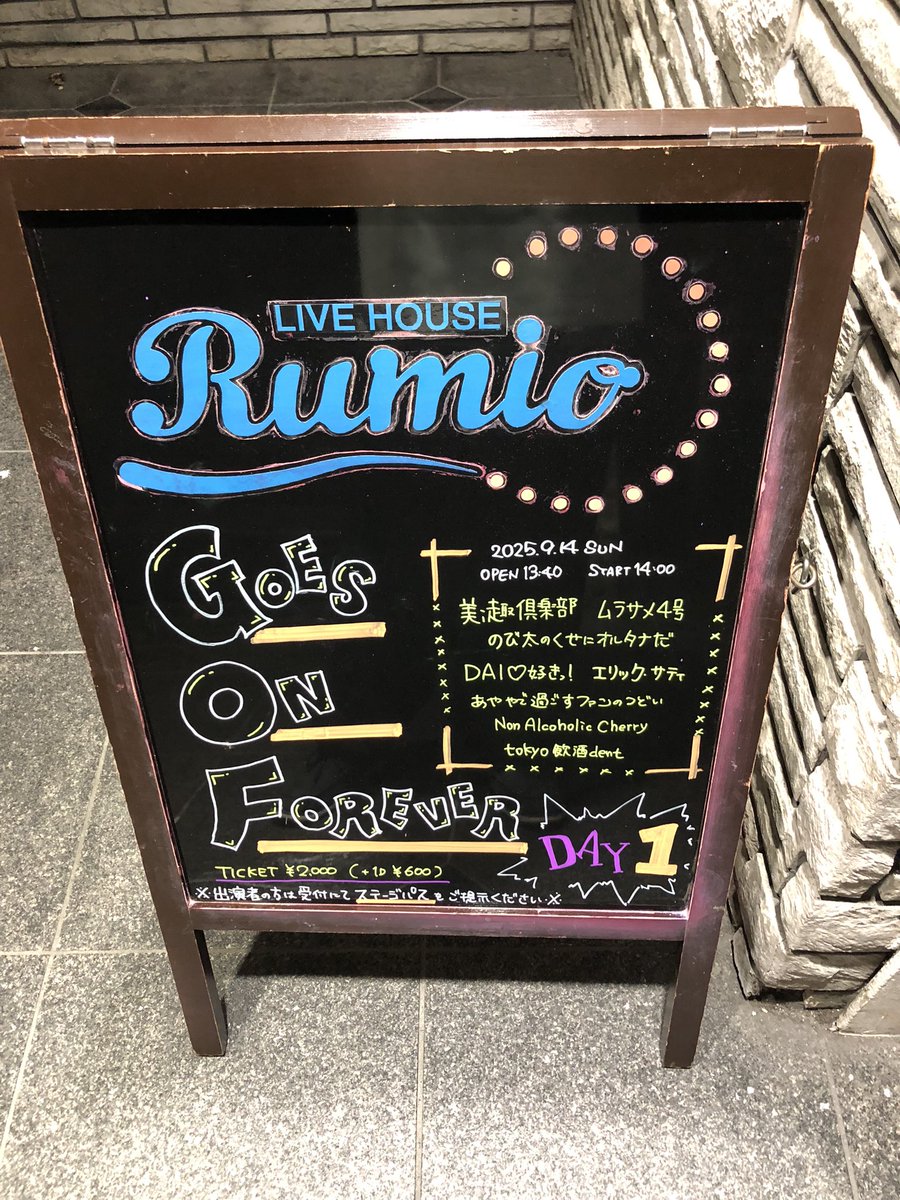 LIVE HOUSE
Rumio
GOES
ON
FOREVER
2025.9.14 SUN
OPEN 13:40 START 14:00
美趣倶楽部 ムラサメ4号
のび太のくせにオルタナだ
DAI♡好きっ! エリック・サティ
あややで過ごすファンのつどい
Non Alcoholic Cherry
tokyo 飲酒dent
DAY 1
TICKET ¥2,000 (+1D ¥600)
※出演者の方は受付にてステージパスをご提示ください※